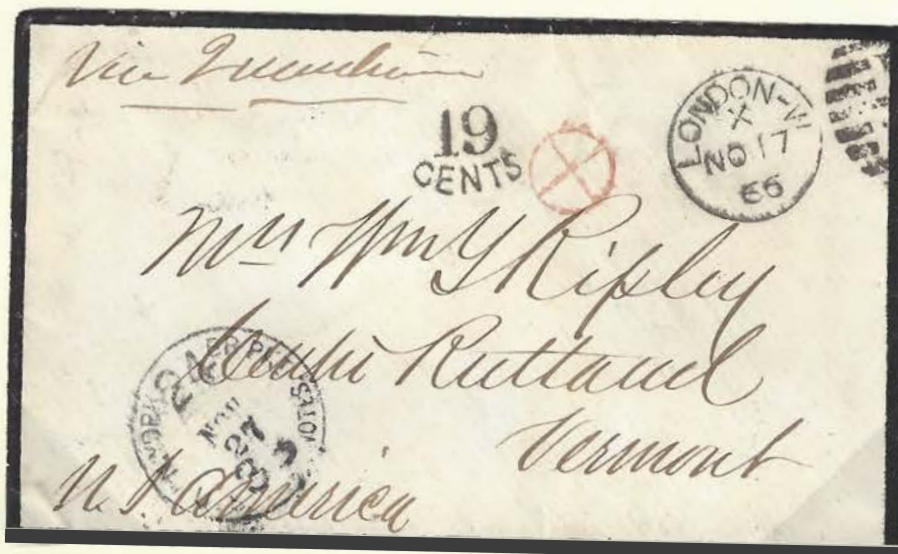 Via Queenstown
19
CENTS
LONDON-W
X
NO 17
66
Mrs Wm Y Ripley
Centre Rutland
Vermont
N. YORK AM. PKT
NOV
27
N. America